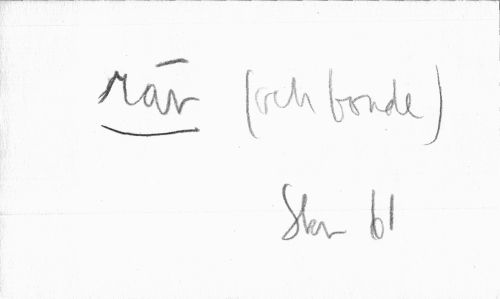 räv (och bonde)
Skr 61